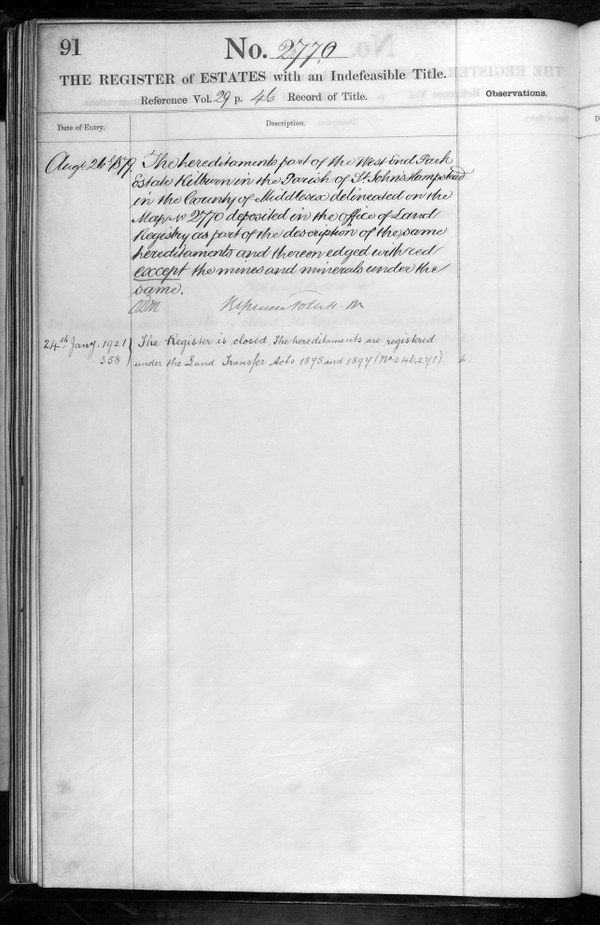 91
No. 2770
THE REGISTER of ESTATES with an Indefeasible Title.
Reference Vol. 29 p. 46 Record of Title.
Observations.
Date of Entry.
Description.
Augt 26th 1879 The hereditaments part of the West End Park
Estate Kilburn in the Parish of St John's Hampstead
in the County of Middlesex delineated on the
Map No 2770 deposited in the office of Land
Registry as part of the description of the same
hereditaments and thereon edged with red
except the mines and minerals under the
same.
24th Jany. 1921 The Register is closed. The hereditaments are registered
358 under the Land Transfer Acts 1875 and 1897 (No 246,271).